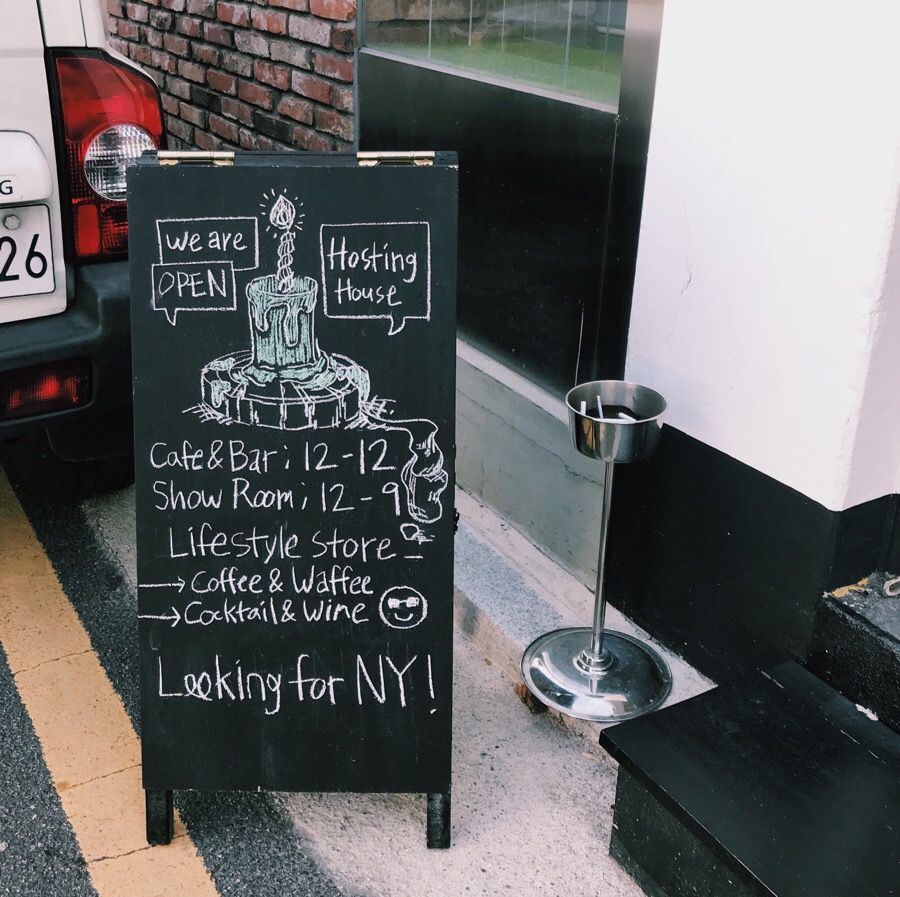 We are
OPEN
Hosting
House
Cafe & Bar ; 12 - 12
Show Room ; 12 - 9
Lifestyle store
→ Coffee & Waffee
→ Cocktail & Wine
Looking for NY !
G
26